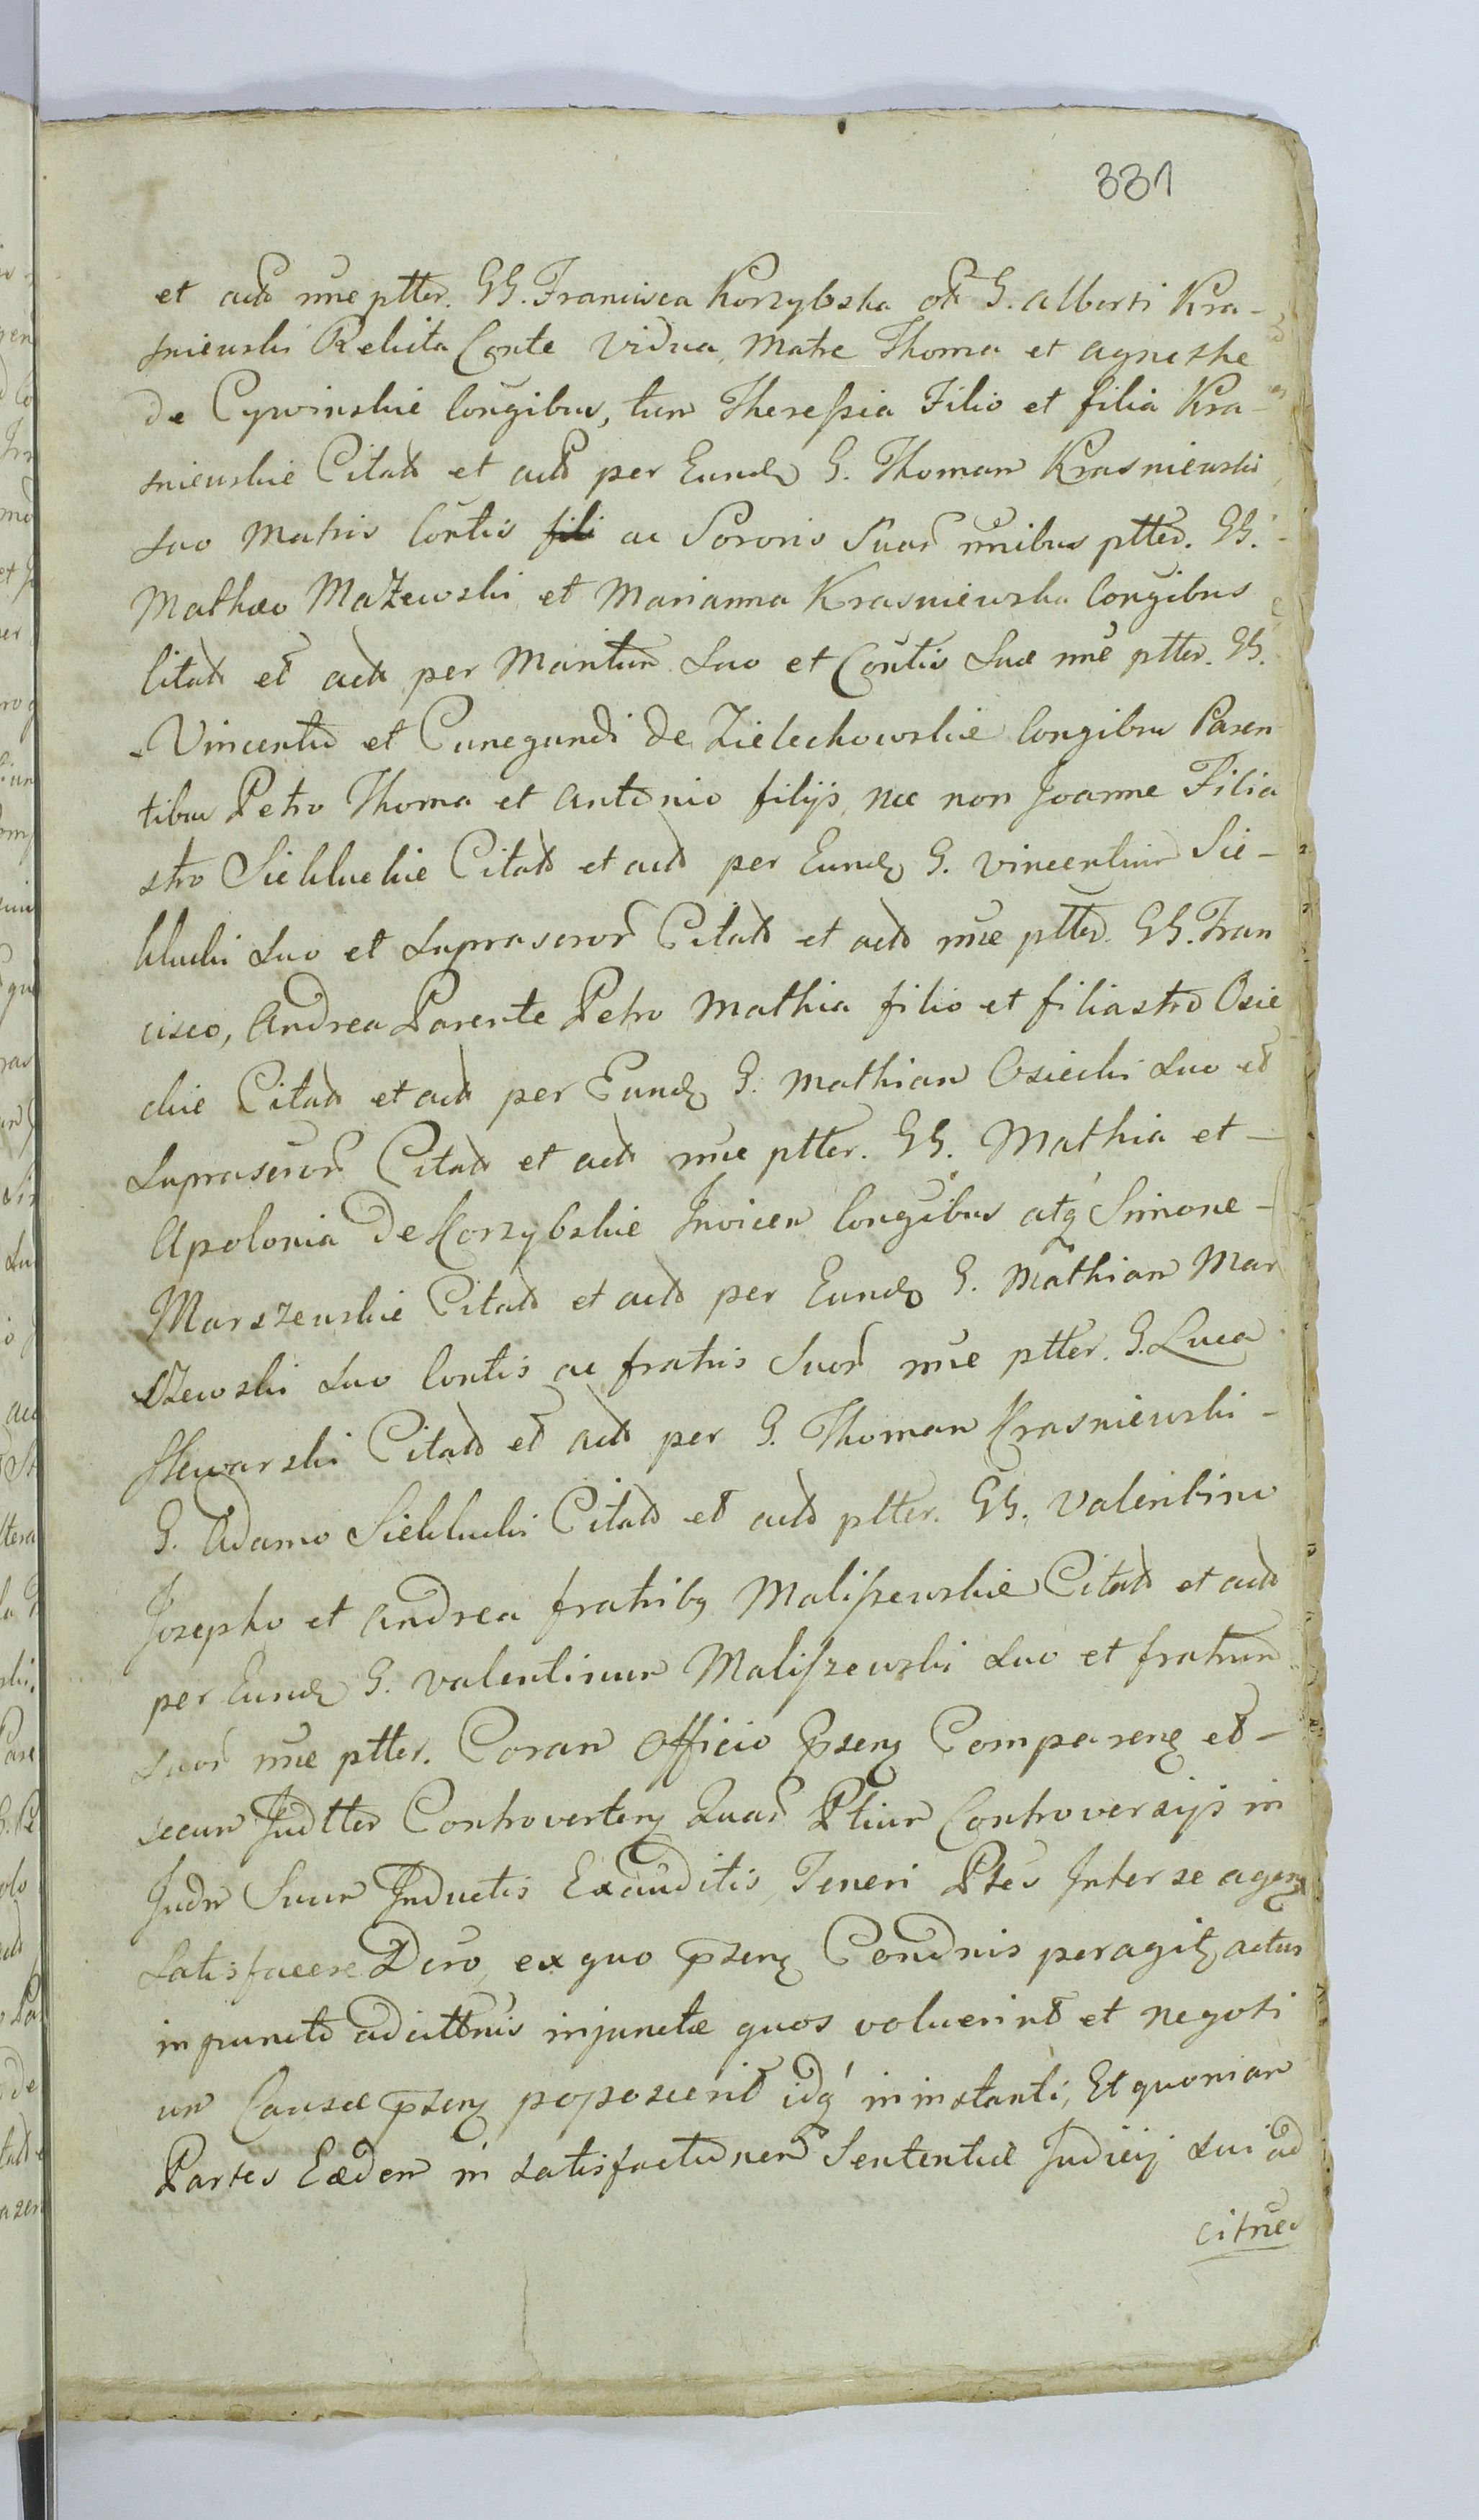 331
et actt nne ptter. GG. Francisca Korzybska olt G. Alberti Kra-
sniewski Relicta Conte vidua, Matre Thoma et Agneshe
de Cywinskie Congibus, tum Theressia Filio et filia Kra-
sniewskie Citatt et actt per Eundem G. Thomam Krasniewski
suo Matris Contis fili ac Sororis Suar nnibus ptter. GG.
Mathæo Mazewski et Marianna Krasniewska Congibus
Citatt et actt per Maritum suo et Contis Suæ nne ptter. GG.
Vincentio et Cunegundi de Zielechowskie Congibus Paren
tibus Petro Thoma et Antonio filijs, nec non Joanne Filia
stro Siekluckie Citatt et actt per Eundem G. Vincentium Sie-
klucki suo et suprascror Citatt et actt nne ptter. GG. Fran
cisco, Andrea Parente Petro Mathia filio et filiastro Osie
ckie Citatt et actt per Eundem G. Mathiam Osiecki suo et
suprascror Citatt et actt nne ptter. GG. Mathia et -
Apolonia de Korzybskie Invicem Congibus atq Simone -
Marszewskie Citatt et actt per Eundem G. Mathiam Mar
szewski suo Contis ac fratris Suor nne ptter. G. Luca
Skwarski Citatt et actt per G. Thomam Krasniewski -
G. Adamo Sieklucki Citatt et actt ptter. GG. Valentino
Josepho et Andrea fratribq Maliszewskie Citatt et actt
per Eundem G. Valentinum Maliszewski suo et fratrum
suor nne ptter. Coram Officio psenq Comparenq et -
secum Judtter Controvertenq Quar Ptium Controversijs in
Judm Suum Inductis Exauditis, Teneri Ptes Inter se agenq
satisfacere Dcro, ex quo psenq Condnis peragitq actus
in puncto adcittnis injunctæ quos voluerint et negoti
um Causæ psenq poposcerit idq in instanti, Et quoniam
Partes Eædem in satisfactionem Sententiæ Judicij sui ad
citnes